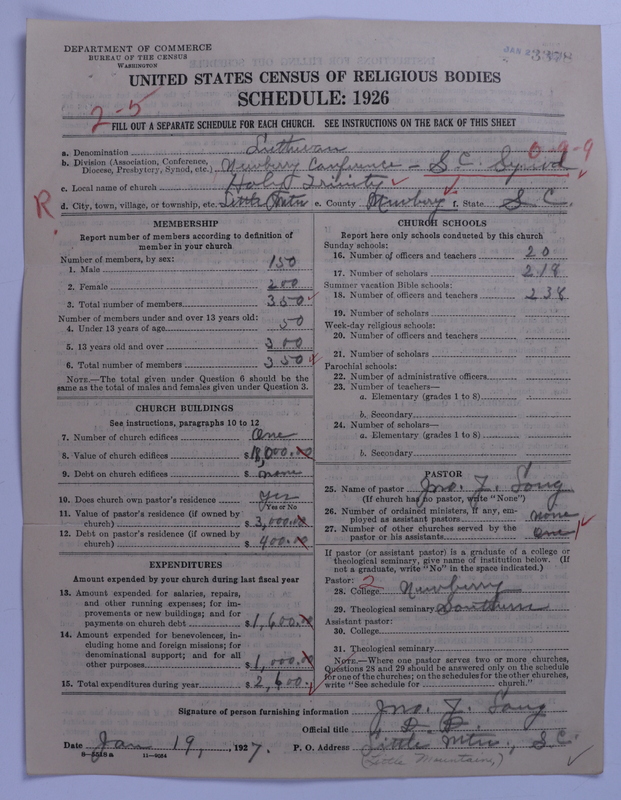 DEPARTMENT OF COMMERCE
BUREAU OF THE CENSUS
WASHINGTON
UNITED STATES CENSUS OF RELIGIOUS BODIES
SCHEDULE: 1926
2-5
FILL OUT A SEPARATE SCHEDULE FOR EACH CHURCH. SEE INSTRUCTIONS ON THE BACK OF THIS SHEET
0-9-9
a. Denomination Lutheran
b. Division (Association, Conference, Diocese, Presbytery, Synod, etc.) Newberry Conference – S.C. Synod
c. Local name of church Holy Trinity
R
d. City, town, village, or township, etc. Little Mtn e. County Newberry f. State S C.
MEMBERSHIP
Report number of members according to definition of
member in your church
Number of members, by sex:
1. Male 150
2. Female 200
3. Total number of members 350
Number of members under and over 13 years old:
4. Under 13 years of age 50
5. 13 years old and over 300
6. Total number of members 350
NOTE.—The total given under Question 6 should be the
same as the total of males and females given under Question 3.
CHURCH BUILDINGS
See instructions, paragraphs 10 to 12
7. Number of church edifices One
8. Value of church edifices $ 18,000.00
9. Debt on church edifices $ none
10. Does church own pastor's residence Yes
Yes or No
11. Value of pastor's residence (if owned by
church) $ 3,000.00
12. Debt on pastor's residence (if owned by
church) $ 400.00
EXPENDITURES
Amount expended by your church during last fiscal year
13. Amount expended for salaries, repairs,
and other running expenses; for im-
provements or new buildings; and for
payments on church debt $ 1,600.00
14. Amount expended for benevolences, in-
cluding home and foreign missions; for
denominational support; and for all
other purposes $ 1,000.00
15. Total expenditures during year $ 2,600.
CHURCH SCHOOLS
Report here only schools conducted by this church
Sunday schools:
16. Number of officers and teachers 20
17. Number of scholars 218
Summer vacation Bible schools:
18. Number of officers and teachers 238
19. Number of scholars
Week-day religious schools:
20. Number of officers and teachers
21. Number of scholars
Parochial schools:
22. Number of administrative officers
23. Number of teachers—
a. Elementary (grades 1 to 8)
b. Secondary
24. Number of scholars—
a. Elementary (grades 1 to 8)
b. Secondary
PASTOR
25. Name of pastor Jno. J. Long
(If church has no pastor, write "None")
26. Number of ordained ministers, if any, em-
ployed as assistant pastors none
27. Number of other churches served by the
pastor or his assistants One 1
If pastor (or assistant pastor) is a graduate of a college or
theological seminary, give name of institution below. (If
not a graduate, write "No" in the space indicated.)
Pastor: 2
28. College Newberry
29. Theological seminary Southern
Assistant pastor:
30. College
31. Theological seminary
NOTE.—Where one pastor serves two or more churches,
Questions 28 and 29 should be answered only on the schedule
for one of the churches; on the schedules for the other churches,
write "See schedule for church."
Signature of person furnishing information Jno. J. Long
Official title D. D.
Date Jan 19, , 1927. P. O. Address Little Mtn., S.C.
8-5518a 11-9064
(Little Mountain,)